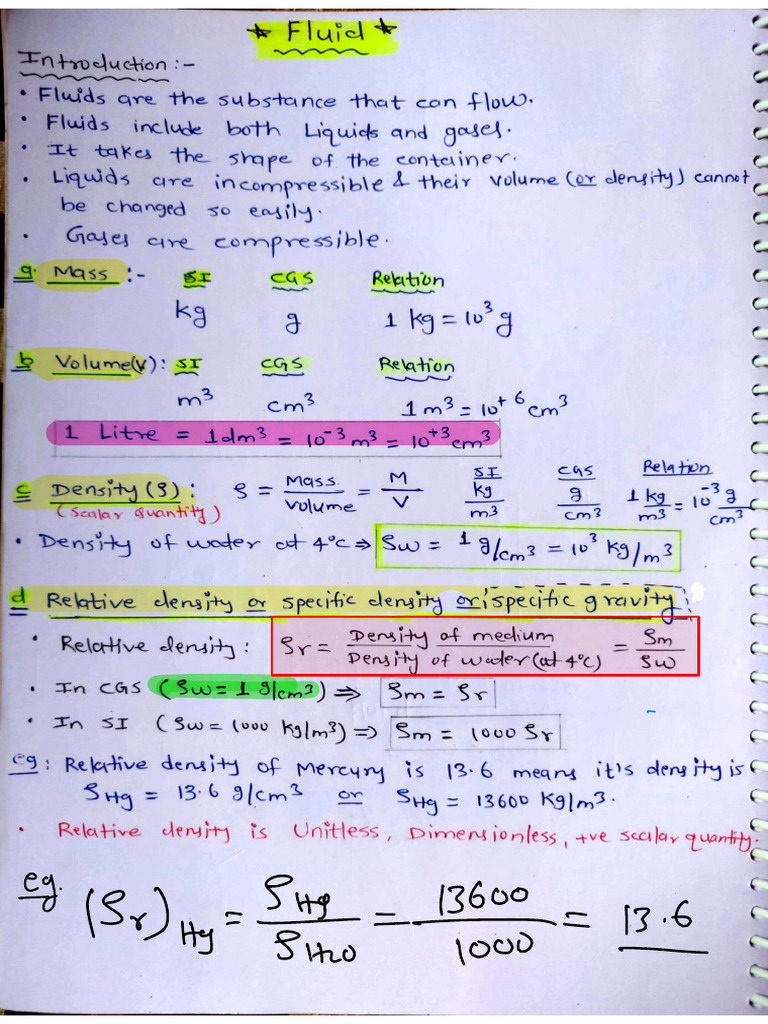 * Fluid *
Introduction :-
• Fluids are the substance that can flow.
• Fluids include both Liquids and gases.
• It takes the shape of the container.
• Liquids are incompressible & their volume (or density) cannot
be changed so easily.
• Gases are compressible.
a. Mass :- SI CGS Relation
kg g 1 kg = 10³ g
b Volume(V): SI CGS Relation
m³ cm³ 1 m³ = 10⁺⁶ cm³
1 Litre = 1dm³ = 10⁻³ m³ = 10⁺³ cm³
c Density (ρ): ρ = Mass/Volume = M/V SI kg/m³ CGS g/cm³ Relation 1 kg/m³ = 10⁻³ g/cm³
(scalar quantity)
• Density of water at 4°C ⇒ ρw = 1 g/cm³ = 10³ kg/m³
d Relative density or specific density or specific gravity
• Relative density: ρr = Density of medium/Density of water (at 4°C) = ρm/ρw
• In CGS (ρw = 1 g/cm³) ⇒ ρm = ρr
• In SI (ρw = 1000 kg/m³) ⇒ ρm = 1000 ρr
eg: Relative density of Mercury is 13.6 means it's density is
ρHg = 13.6 g/cm³ or ρHg = 13600 Kg/m³.
• Relative density is Unitless, Dimensionless, +ve scalar quantity.
eg. (ρr)Hg = ρHg/ρH2O = 13600/1000 = 13.6